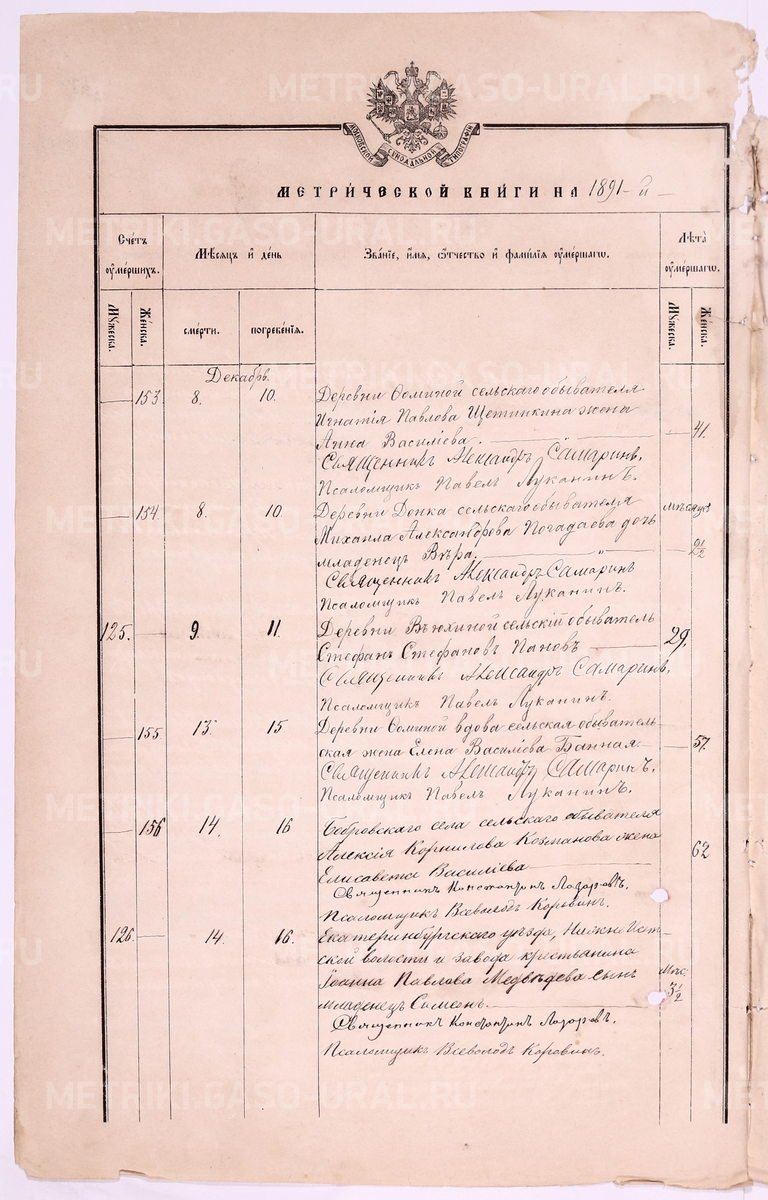 МОСКОВСКОЙ СѴНОДАЛЬНОЙ ТИПОГРАФІИ
МЕТРИ́ЧЕСКОЙ КНИ́ГИ НА 1891-й
Сче́тъ ᲂу҆ме́ршихъ.
Мѣ́сяцъ и҆ де́нь
Зва́ніе, и҆́мя, ѻ҆́тчество и҆ фами́лія ᲂу҆ме́ршагѡ.
Лѣта̀ ᲂу҆ме́ршагѡ.
Мꙋ́жеска.
Же́нска.
сме́рти.
погребе́нія.
Мꙋ́жеска.
Же́нска.
Декабрь.
153 8. 10. Деревни Осминой сельскаго обывателя
Игнатія Павлова Щетинкина жена
Анна Василіева. 41.
Священникъ Александръ Самаринъ.
Псаломщикъ Павелъ Луканинъ.
154. 8. 10. Деревни Донка сельскаго обывателя мѣсяцев
Михаила Александрова Погадаева дочь
младенецъ Вѣра. 2½
Священникъ Александръ Самаринъ
Псаломщикъ Павелъ Луканинъ.
125. 9. 11. Деревни Вьюхиной сельскій обыватель
Стефанъ Стефановъ Пановъ 29.
Священникъ Александръ Самаринъ.
Псаломщикъ Павелъ Луканинъ.
155 13. 15 Деревни Осминой вдова сельская обыватель-
ская жена Елена Василіева Банная. 57.
Священникъ Александръ Самаринъ.
Псаломщикъ Павелъ Луканинъ.
156 14. 16 Бобровскаго села сельскаго обывателя
Алексія Корнилова Козманова жена 62
Елисавета Василіева
Священникъ Константинъ Лазаревъ.
Псаломщикъ Всеволодъ Коровинъ.
126. 14. 16. Екатеринбургскаго уѣзда, Нижне Исет-
ской волости и завода крестьянина
Іоанна Павлова Медвѣдева сынъ Мѣс.
младенецъ Симеонъ. 3½
Священникъ Константинъ Лазаревъ.
Псаломщикъ Всеволодъ Коровинъ.
METRIKI.GASO-URAL.RU